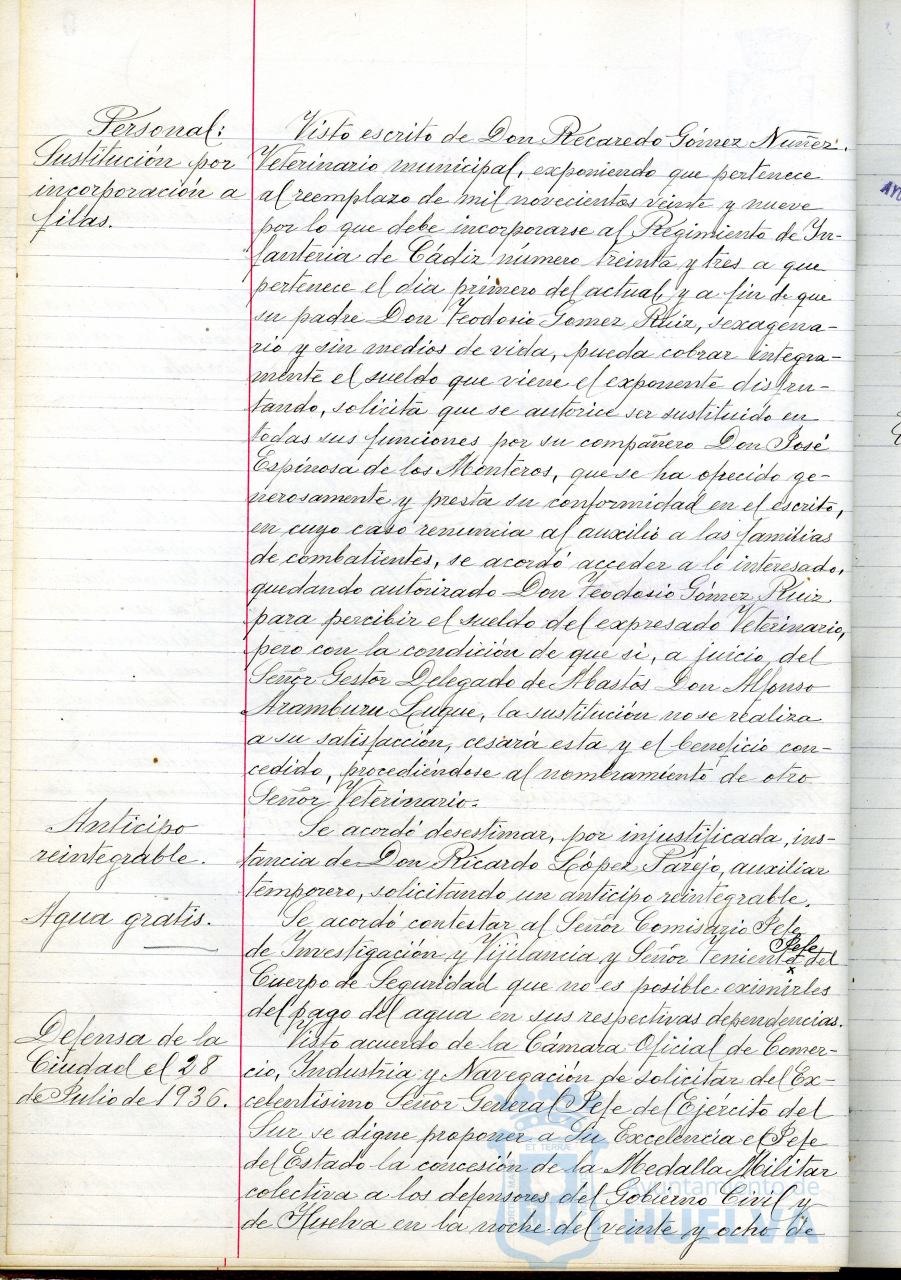 Personal:
Sustitución por
incorporación a
filas.
Visto escrito de Don Recaredo Gómez Nuñez.
Veterinario municipal, exponiendo que pertenece
al reemplazo de mil novecientos veinte y nueve
por lo que debe incorporarse al Regimiento de In-
fanteria de Cádiz número treinta y tres a que
pertenece el dia primero del actual, y a fin de que
su padre Don Teodosio Gomez Ruiz, sexagena-
rio y sin medios de vida, pueda cobrar integra-
mente el sueldo que viene el exponente disfru-
tando, solicita que se autorice ser sustituido en
todas sus funciones por su compañero Don José
Espinosa de los Monteros, que se ha ofrecido ge-
nerosamente y presta su conformidad en el escrito,
en cuyo caso renuncia al auxilio a las familias
de combatientes, se acordó acceder a lo interesado,
quedando autorizado Don Teodosio Gómez Ruiz
para percibir el sueldo del expresado Veterinario,
pero con la condición de que si, a juicio del
Señor Gestor Delegado de Abastos Don Alfonso
Aramburu Luque, la sustitución no se realiza
a su satisfacción, cesará esta y el beneficio con-
cedido, procediéndose al nombramiento de otro
Señor Veterinario.
Anticipo
reintegrable.
Se acordó desestimar, por injustificada, ins-
tancia de Don Ricardo López Parejo, auxiliar
temporero, solicitando un anticipo reintegrable.
Agua gratis.
Se acordó contestar al Señor Comisario Jefe
de Investigación y Vijilancia y Señor Teniente Jefe del
Cuerpo de Seguridad que no es posible eximirles
del pago del agua en sus respectivas dependencias.
Defensa de la
Ciudad el 28
de Julio de 1936.
Visto acuerdo de la Cámara Oficial de Comer-
cio, Industria y Navegación de solicitar del Ex-
celentisimo Señor General Jefe del Ejército del
Sur se digne proponer a Su Excelencia el Jefe
del Estado la concesión de la Medalla Militar
colectiva a los defensores del Gobierno Civil y
de Huelva en la noche del veinte y ocho de
Ayuntamiento de
HUELVA